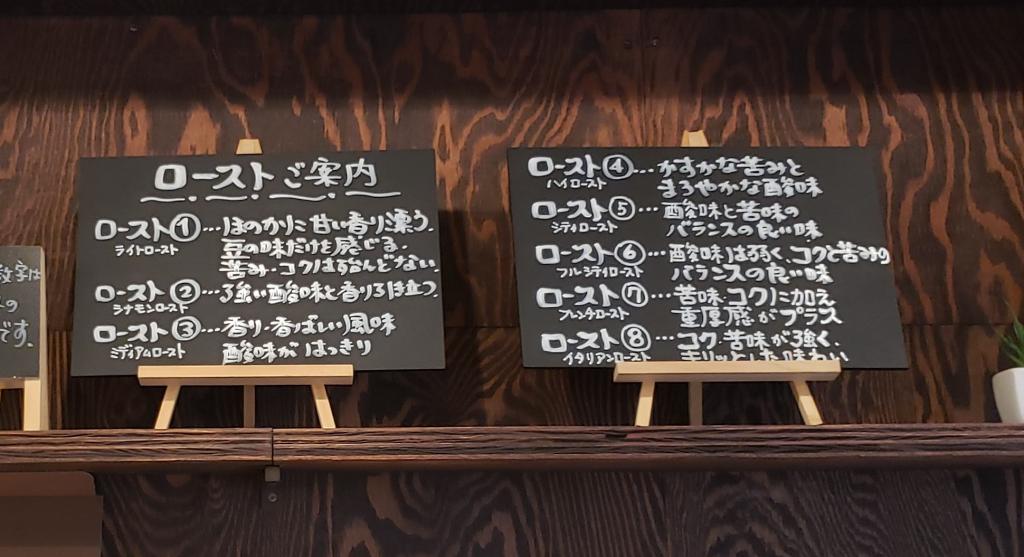 数字は
の
です。
ローストご案内
ロースト①…ほのかに甘い香り漂う。
ライトロースト
豆の味だけを感じる。
苦み・コクは殆んどない。
ロースト②…強い酸味と香り引き立つ。
シナモンロースト
ロースト③…香り・香ばしい風味
ミディアムロースト
酸味がはっきり
ロースト④…かすかな苦みと
ハイロースト
まろやかな酸味
ロースト⑤…酸味と苦味の
シティロースト
バランスの良い味
ロースト⑥…酸味は弱く、コクと苦みの
フルシティロースト
バランスの良い味
ロースト⑦…苦味・コクに加え
フレンチロースト
重厚感がプラス
ロースト⑧…コク・苦味が強く、
イタリアンロースト
キリッとした味わい